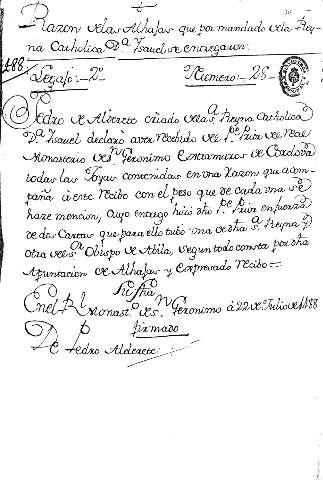 Razon de las Alhajas que por mandado de la Rey-
na Catholica Dª Ysauel se entregaron.
1488
Legajo: 2º Numero: 28
Pedro de Alderete criado de la Sª Reyna Catholica
Dª Ysauel declaró aver recibido del Pe Prior del Real
Monasterio de Sn Geronimo extramuros de Cordova
todas las Joyas contenidas en una Razon que acom-
paña à este recibo con el peso que de cada una se
haze mencion, cuyo entrego hizo dho Pe Prior en fuerza
de dos Cartas que para ello tubo una de dha Sª Reyna y
otra del Sr Obispo de Abila, segun todo consta por dha
Apuntacion de Alhajas y expresado recibo
Su fha
En el Rl Monastº de Sn Geronimo à 22 de Julio de 1488
firmado
De Pedro Alderete